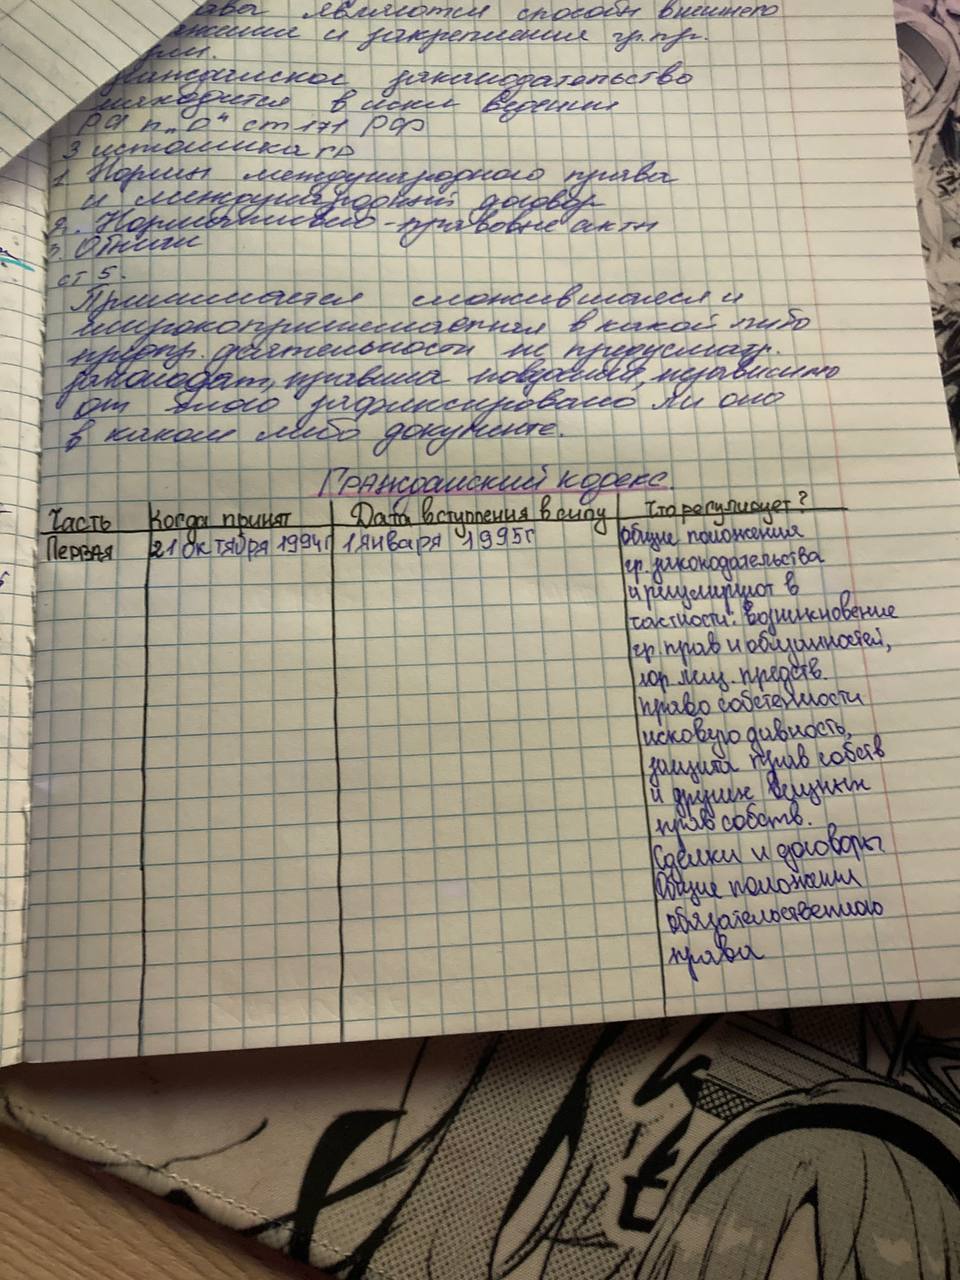 являются способы внешнего
и закрепления гр.пр.
законодательство
находится в искл ведении
РФ п „О" ст 171 РФ
3 источника гр
1. Нормы международного права
и международный договор
2. Нормативно-правовые акты
3. Обычаи
ст 5.
сложившееся и
в какой либо
предпр. деятельности не предусматр.
законодат, правила поведения, независимо
от зафиксировано ли оно
в каком либо документе.
Гражданский кодекс.
Часть Когда принят Дата вступления в силу Что регулирует?
Первая 21 октября 1994г 1 января 1995г Общие положения
гр. законодательства
и регулируют в
частности: возникновение
гр. прав и обязанностей,
юр. лиц. предств.
право собственности
исковую давность,
защита прав собств
и других вещных
прав собств.
Сделки и договоры
Общие положения
обязательственного
права